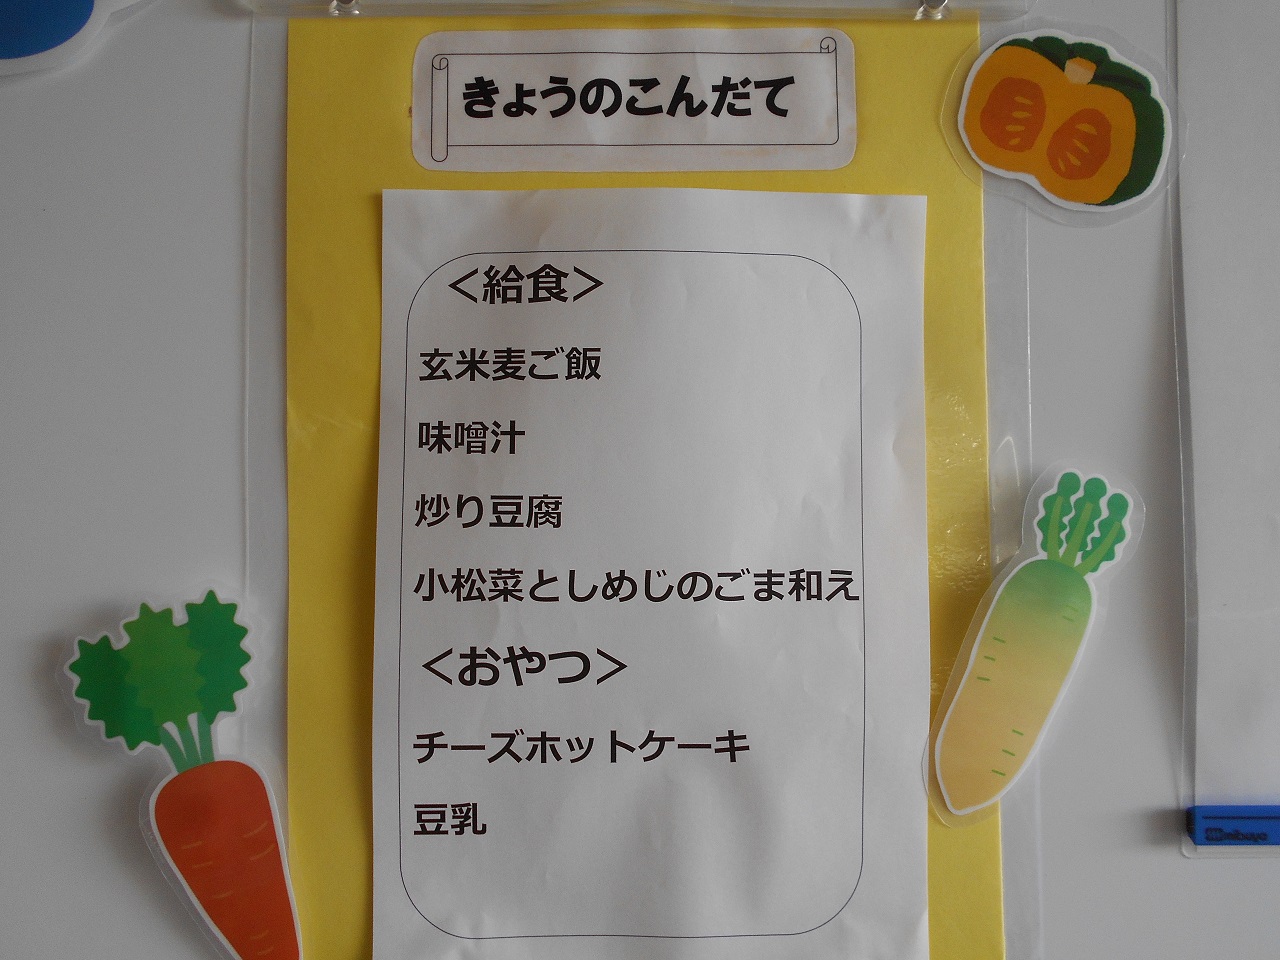 きょうのこんだて
＜給食＞
玄米麦ご飯
味噌汁
炒り豆腐
小松菜としめじのごま和え
＜おやつ＞
チーズホットケーキ
豆乳